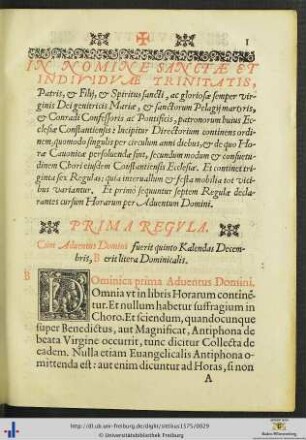 1
IN NOMINE SANCTÆ ET
INDIVIDVAE TRINITATIS,
Patris, & Filij, & Spiritus sancti, ac gloriosæ semper vir-
ginis Dei genitricis Mariæ, & sanctorum Pelagij martyris,
& Conradi Confessoris ac Pontificis, patronorum huius Ec-
clesiæ Constantiensis: Incipit Directorium continens ordi-
nem, quomodo singulis per circulum anni diebus, & de quo Ho-
ræ Canonicæ persoluendæ sint, secundum modum & consuetu-
dinem Chori eiusdem Constantiensis Ecclesiæ. Et continet tri-
ginta sex Regulas; quia interuallum & festa mobilia tot vici-
bus variantur. Et primò sequuntur septem Regulæ decla-
rantes cursum Horarum per Aduentum Domini.
PRIMA REGVLA.
Cùm Aduentus Domini fuerit quinto Kalendas Decem-
bris, B erit litera Dominicalis.
B
DOminica prima Aduentus Domini,
Omnia vt in libris Horarum continē-
tur. Et nullum habetur suffragium in
Choro. Et sciendum, quandocunque
super Benedictus, aut Magnificat, Antiphona de
beata Virgine occurrit, tunc dicitur Collecta de
eadem. Nulla etiam Euangelicalis Antiphona o-
mittenda est: aut enim dicuntur ad Horas, si non
A
http://dl.ub.uni-freiburg.de/diglit/stittius1575/0029
© Universitätsbibliothek Freiburg
Baden-Württemberg